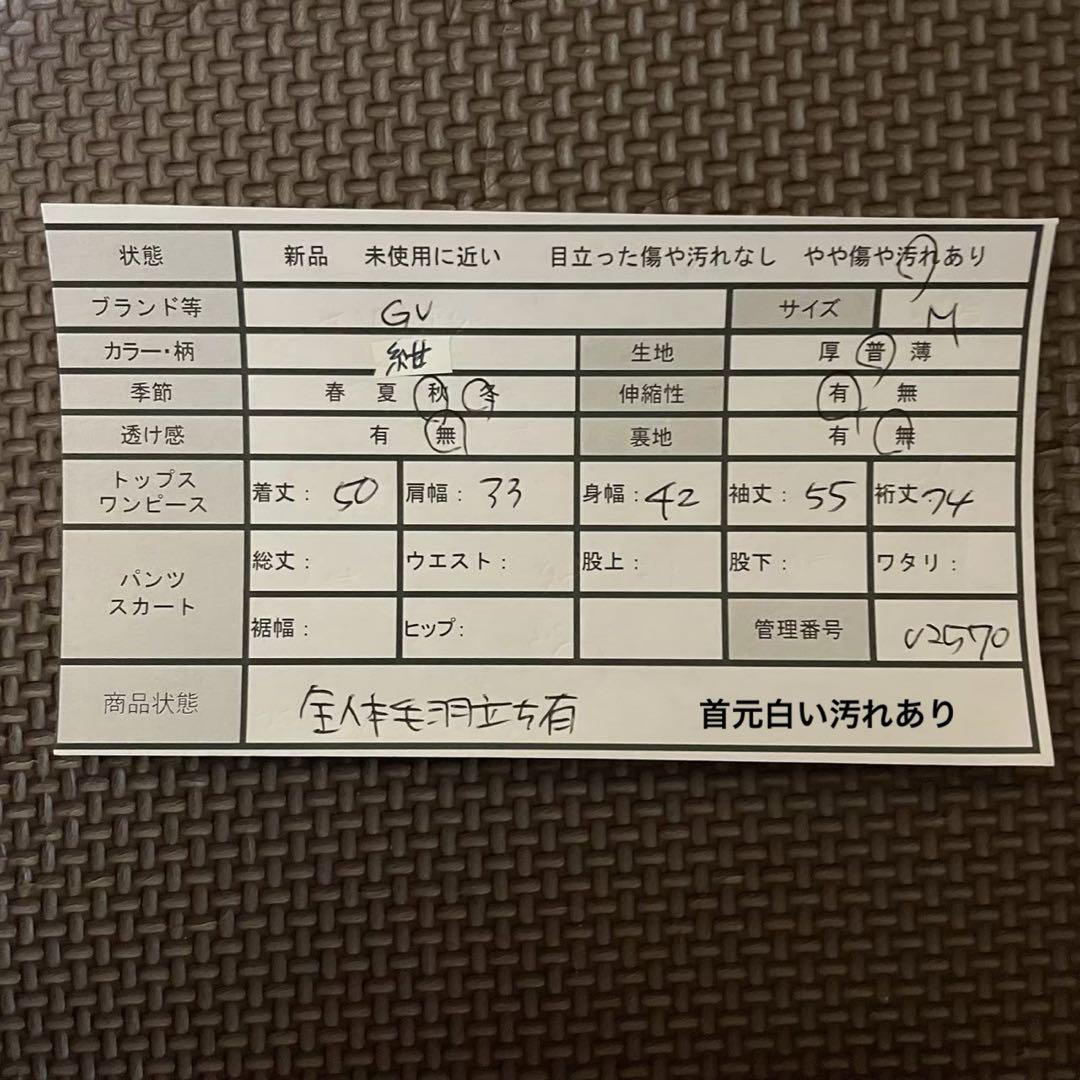 状態 新品 未使用に近い 目立った傷や汚れなし やや傷や汚れあり
ブランド等 GU サイズ M
カラー・柄 紺 生地 厚 普 薄
季節 春 夏 秋 冬 伸縮性 有 無
透け感 有 無 裏地 有 無
トップス
ワンピース
着丈： 50 肩幅： 33 身幅： 42 袖丈： 55 裄丈 74
パンツ
スカート
総丈： ウエスト： 股上： 股下： ワタリ：
裾幅： ヒップ： 管理番号 U2570
商品状態 全体毛羽立ち有 首元白い汚れあり